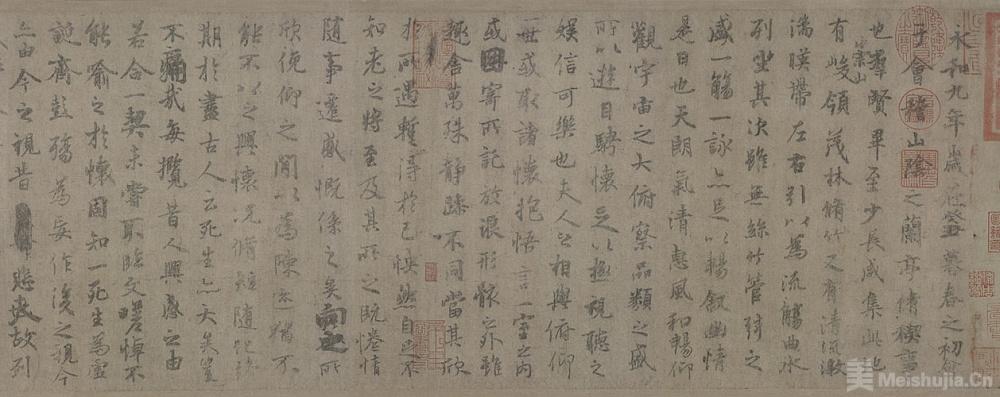 永和九年歲在癸丑暮春之初會
于會稽山陰之蘭亭脩稧事
也羣賢畢至少長咸集此地
有崇山峻領茂林脩竹又有清流激
湍暎帶左右引以為流觴曲水
列坐其次雖無絲竹管弦之
盛一觴一詠亦足以暢敘幽情
是日也天朗氣清惠風和暢仰
觀宇宙之大俯察品類之盛
所以遊目騁懷足以極視聽之
娛信可樂也夫人之相與俯仰
一世或取諸懷抱悟言一室之內
或因寄所託放浪形骸之外雖
趣舍萬殊靜躁不同當其欣
於所遇暫得於己怏然自足不
知老之將至及其所之既惓情
隨事遷感慨係之矣向之所
欣俛仰之閒以為陳跡猶不
能不以之興懷況脩短隨化終
期於盡古人云死生亦大矣豈
不痛哉每攬昔人興感之由
若合一契未嘗不臨文嗟悼不
能喻之於懷固知一死生為虛
誕齊彭殤為妄作後之視今
亦由今之視昔悲夫故列
美 Meishujia.Cn